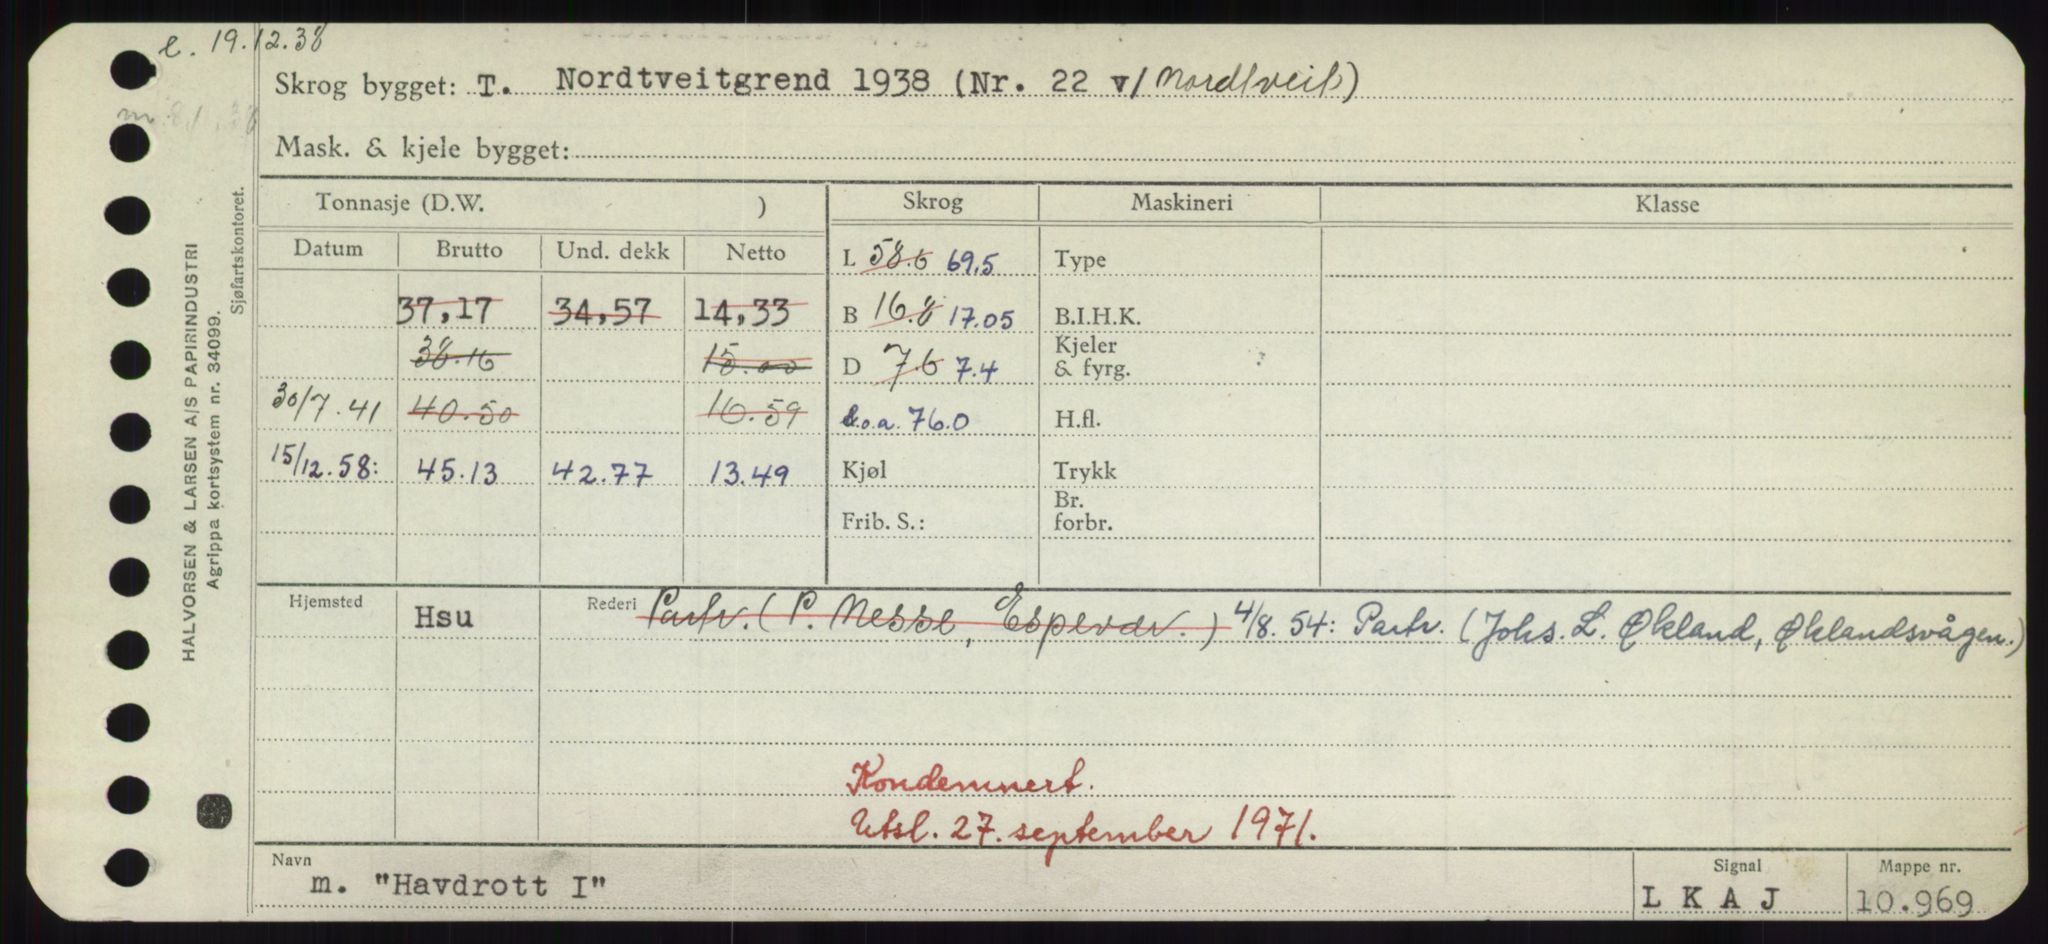 e. 19.12.38
Skrog bygget: T. Nordtveitgrend 1938 (Nr. 22 v/ Nordtveit)
Mask. & kjele bygget:
Tonnasje (D.W. ) Skrog Maskineri Klasse
Datum Brutto Und. dekk Netto L 58.6 69.5 Type
37,17 34,57 14,33 B 16.8 17.05 B.I.H.K.
38.16 15.00 D 7.6 7.4 Kjeler & fyrg.
30/7.41 40.50 16.59 L.o.a. 76.0 H.fl.
15/12.58: 45.13 42.77 13.49 Kjøl Trykk
Frib. S.: Br. forbr.
Hjemsted Hsu Rederi Partr. (P. Nesse, Espevær.) 4/8.54: Partr. (Johs. L. Økland, Øklandsvågen.)
Kondemnert.
Utsl. 27. september 1971.
Navn m. "Havdrott I" Signal L K A J Mappe nr. 10.969
HALVORSEN & LARSEN A/S PAPIRINDUSTRI
Agrippa kortsystem nr. 34099.
Sjøfartskontoret.